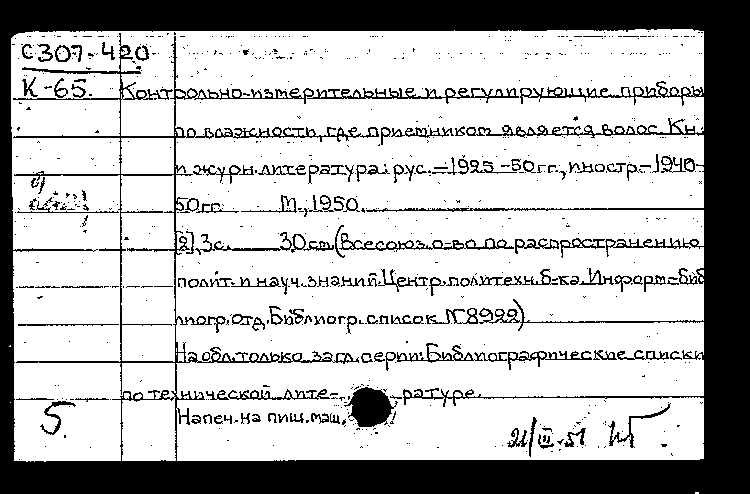 С307-420
К-65. Контрольно-измерительные и регулирующие приборы
по влажности, где приемником является волос. Кн.
и журн. литература: рус. — 1925-50 гг., иностр. - 1940-
50 гг. М., 1950.
[2], 3 с. 30 см (Всесоюз. о-во по распространению
полит. и науч. знаний. Центр. политехн. б-ка. Информ.-биб
лиогр. отд. Библиогр. список №8922)
На обл. только загл. серии: Библиографические списки
по технической лите- ратуре.
5. Напеч. на пиш. маш.
21/III-51